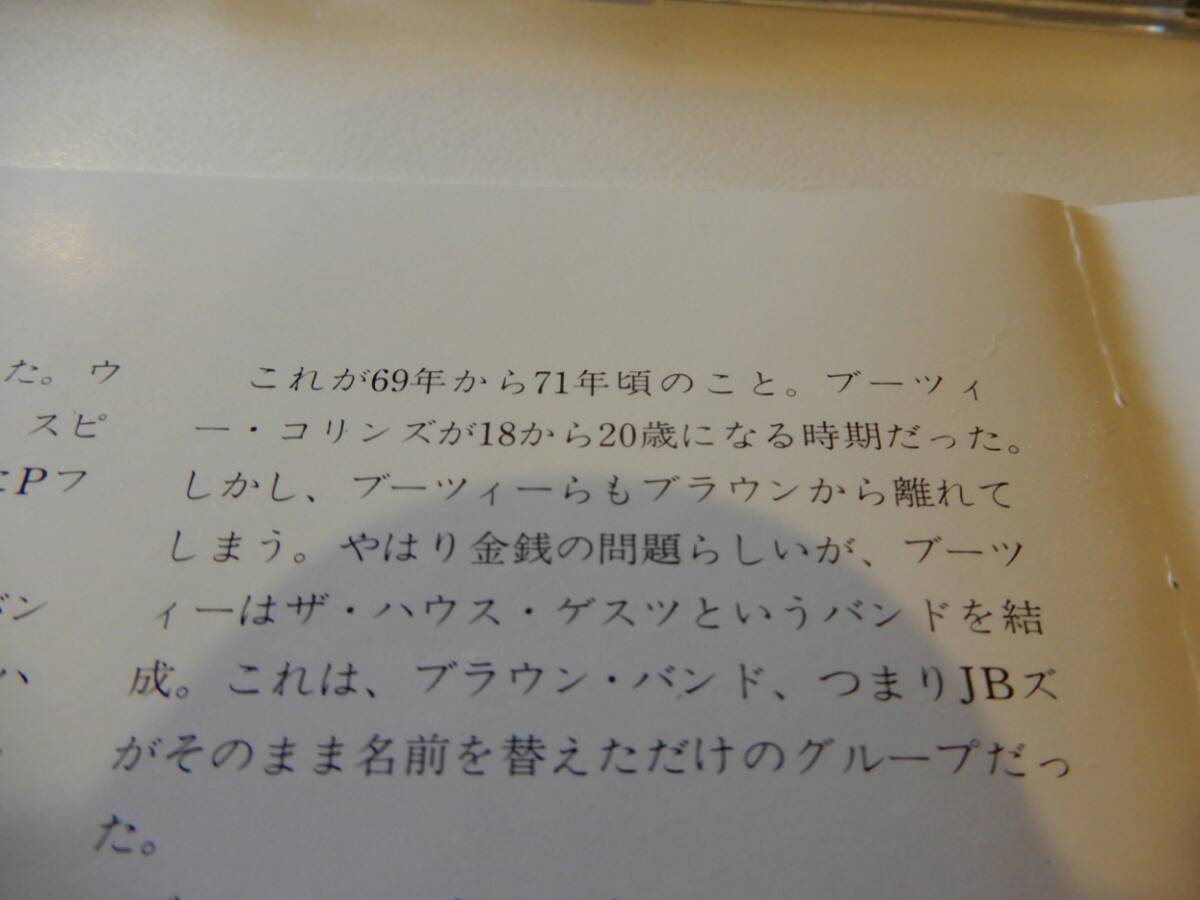 た。ウ
スピ
Pフ
バン
ハ
これが69年から71年頃のこと。ブーツィ
ー・コリンズが18から20歳になる時期だった。
しかし、ブーツィーらもブラウンから離れて
しまう。やはり金銭の問題らしいが、ブーツ
ィーはザ・ハウス・ゲスツというバンドを結
成。これは、ブラウン・バンド、つまりJBズ
がそのまま名前を替えただけのグループだっ
た。